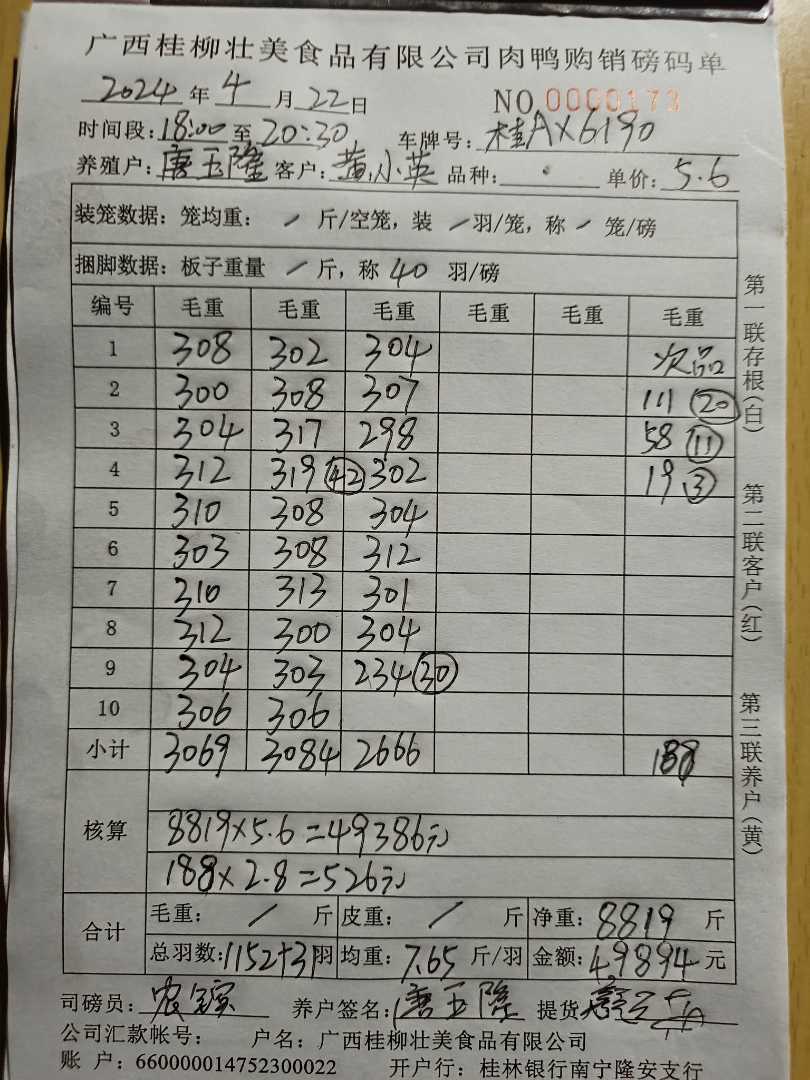 广西桂柳壮美食品有限公司肉鸭购销磅码单
2024年4月22日 NO.0000173
时间段:18:00至20:30 车牌号:桂AX6190
养殖户:唐玉隆 客户:黄小英 品种: 单价:5.6
装笼数据:笼均重:/斤/空笼,装/羽/笼,称/笼/磅
捆脚数据:板子重量/斤,称40羽/磅
编号 毛重 毛重 毛重 毛重 毛重 毛重
1 308 302 304 次品
2 300 308 307 111 20
3 304 317 298 58 11
4 312 319 42 302 19 3
5 310 308 304
6 303 308 312
7 310 313 301
8 312 300 304
9 304 303 234 30
10 306 306
小计 3069 3084 2666 188
核算
8819×5.6=49386元
188×2.8=526元
合计
毛重:/斤 皮重:/斤 净重:8819斤
总羽数:1152+31羽 均重:7.65斤/羽 金额:49894元
司磅员: 养户签名:唐玉隆 提货
公司汇款帐号: 户名:广西桂柳壮美食品有限公司
账 户:660000014752300022 开户行:桂林银行南宁隆安支行
第一联存根(白)
第二联客户(红)
第三联养户(黄)